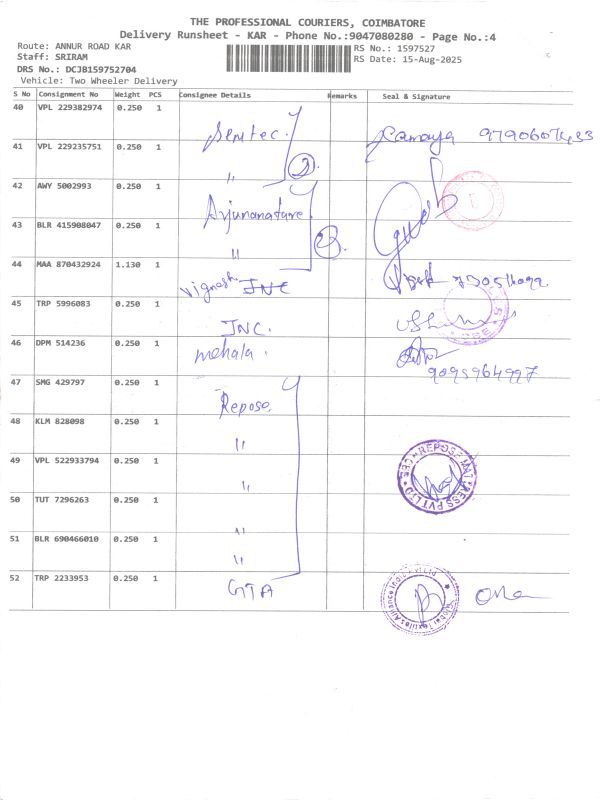 THE PROFESSIONAL COURIERS, COIMBATORE
Delivery Runsheet - KAR - Phone No.:9047080280 - Page No.:4
Route: ANNUR ROAD KAR
RS No.: 1597527
Staff: SRIRAM
RS Date: 15-Aug-2025
DRS No.: DCJB159752704
Vehicle: Two Wheeler Delivery
S No Consignment No Weight PCS Consignee Details Remarks Seal & Signature
40 VPL 229382974 0.250 1
41 VPL 229235751 0.250 1 "
2
42 AWY 5002993 0.250 1
43 BLR 415908047 0.250 1 "
2
44 MAA 870432924 1.130 1 Vignesh JNC
45 TRP 5996083 0.250 1 JNC.
46 DPM 514236 0.250 1 mehala.
9095964997
47 SMG 429797 0.250 1 Repose
48 KLM 828098 0.250 1 "
49 VPL 522933794 0.250 1 "
REPOSE MATTRESS PVT LTD
50 TUT 7296263 0.250 1 "
51 BLR 690466010 0.250 1 "
52 TRP 2233953 0.250 1 GTA
Global Textiles Alliance India Pvt Ltd